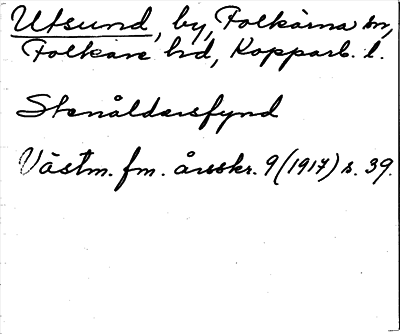 Utsund, by, Folkärna sn,
Folkare hd, Kopparb. l.
Stenåldersfynd
Västm. fm. årsskr. 9 (1917) s. 39.